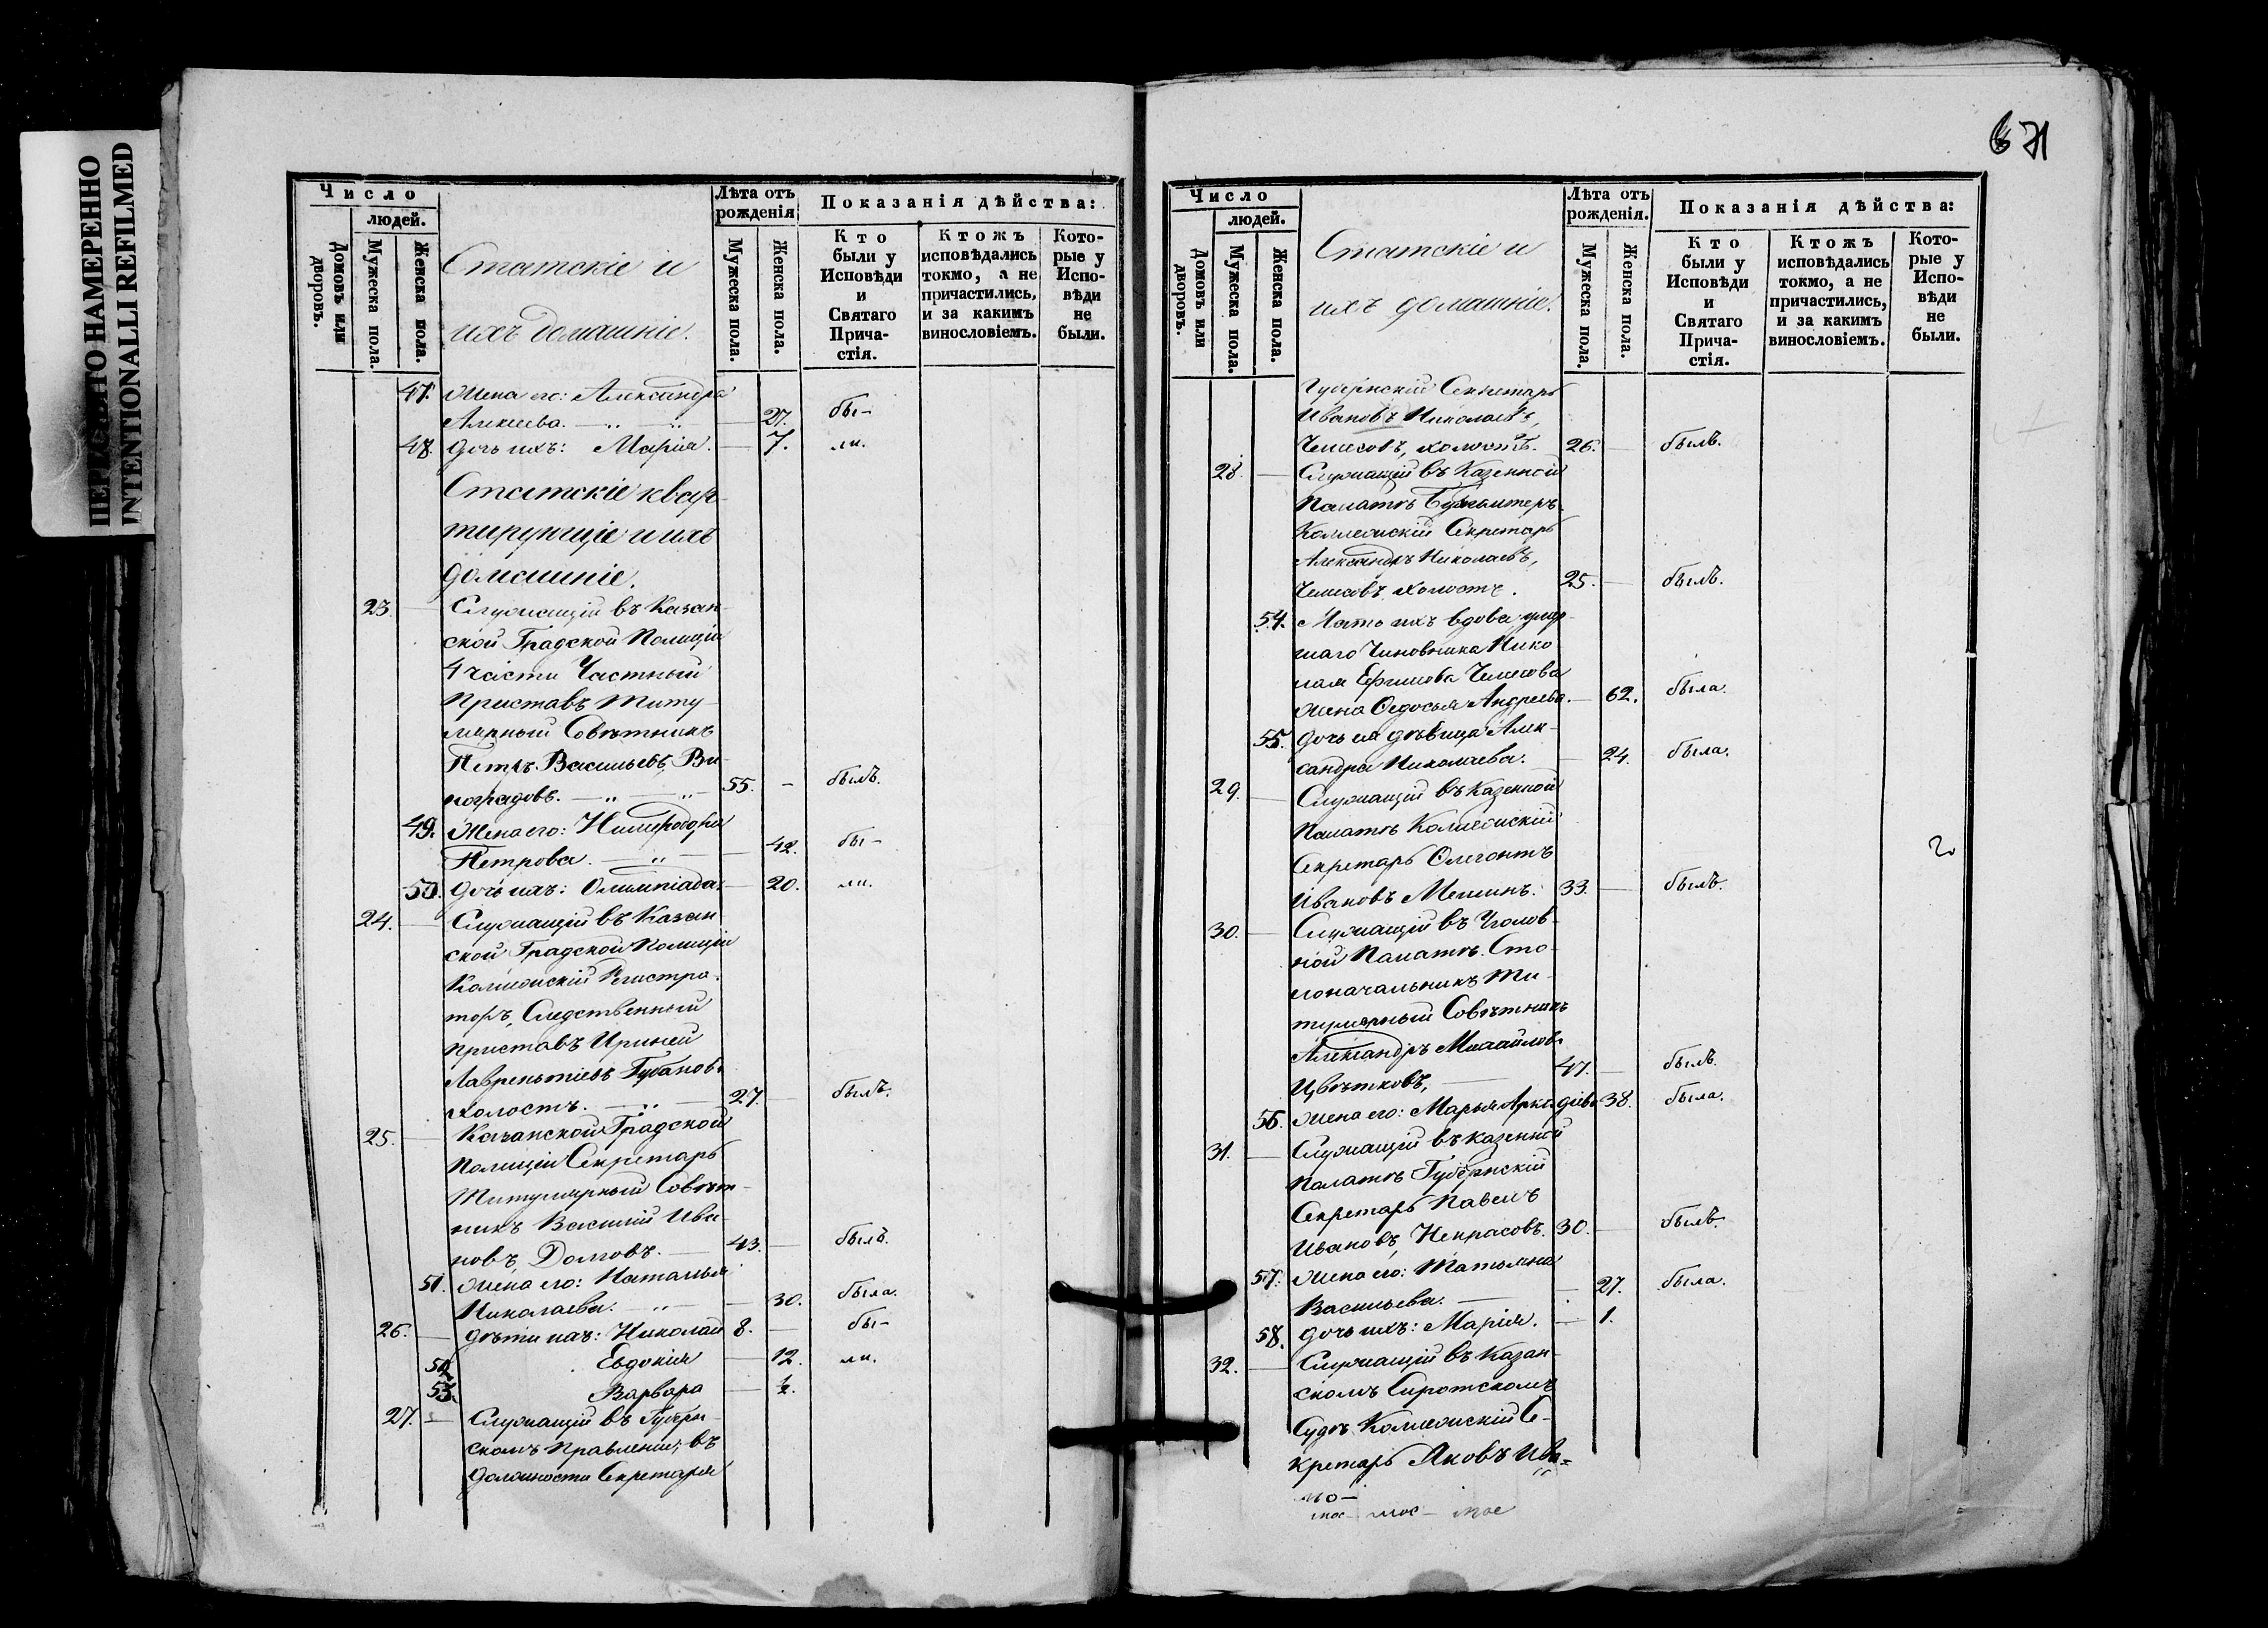 ПЕРЕ НО НАМЕРЕННО
INTENTIONALLI REFILMED
Число
людей.
Домовъ или дворовъ.
Мужеска пола.
Женска пола.
Статскіе и
ихъ домашніе.
Лѣта отъ рожденія
Мужеска пола.
Женска пола.
Показанія дѣйства:
Кто были у Исповѣди и Святаго Прича- стія.
Ктожъ исповѣдались токмо, а не причастились, и за какимъ винословіемъ.
Кото- рые у Испо- вѣди не были.
47. Жена его: Александра
Алексѣева. — „ — „ — 27. бы-
48. Дочь ихъ: Марія. — 7. ли.
Статскіе квар-
тирующіе и ихъ
домашніе.
23. — Служащій въ Казан-
ской Градской Полиціи
4 части Частный
Приставъ Титу-
лярный Совѣтникъ
Петръ Васильевъ, Ви-
ноградовъ. — „ — „ — 55. - былъ.
49. Жена его:
Петрова. — „ — 42. бы-
50. Дочь ихъ: Олимпіада. — 20. ли.
24. — Служащій въ Казан-
ской Градской Полиціи
Коллежскій Регистра-
торъ, Слѣдственный
Приставъ Ириней
Лаврентіевъ Губановъ
холостъ. — „ — 27. — былъ.
25. — Казанской Градской
Полиціи Секретарь
Титулярный Совѣт-
никъ Василій Ива-
новъ, Долговъ. — 43. — былъ.
51. Жена его: Наталья
Николаева. — „ — 30. была.
26. — Дѣти ихъ: Николай 8. — бы-
52. Евдокія — 12. ли.
53. Варвара — ½.
27. — Служащій въ Губерн-
скомъ Правленіи, въ
должности Секретаря
671
Число
людей.
Домовъ или дворовъ.
Мужеска пола.
Женска пола.
Статскіе и
ихъ домашніе.
Лѣта отъ рожденія.
Мужеска пола.
Женска пола.
Показанія дѣйства:
Кто были у Исповѣди и Святаго Прича- стія.
Ктожъ исповѣдались токмо, а не причастились, и за какимъ винословіемъ.
Кото- рые у Испо- вѣди не были.
Губернскій Секретарь
Ивановъ Николаевъ,
Чемесовъ, холостъ. 26. — былъ.
28. — Служащій въ Казенной
Палатѣ Бухгалтеръ
Коллежскій Секретарь
Александръ Николаевъ,
Чемесовъ холостъ. 25. — былъ.
54. Мать ихъ вдова умер-
шаго Чиновника Нико-
лая Ефимова Чемесова
жена Ѳедосья Андреева. — 62. была.
55. Дочь ея дѣвица Алек-
сандра Николаева. — 24. была.
29. — Служащій въ Казенной
Палатѣ Коллежскій
Секретарь
Ивановъ 33. — былъ.
30. — Служащій въ Уголов-
ной Палатѣ Сто-
лоначальникъ Ти-
тулярный Совѣтникъ
Александръ Михайловъ
Цвѣтковъ, — 47. — былъ.
56. Жена его: Марья Аркадіева 38. была.
31. — Служащій въ Казенной
Палатѣ Губернскій
Секретарь Павелъ
Ивановъ, Некрасовъ. 30. — былъ.
57. Жена его: Татьяна
Васильева. — 27. была.
58. Дочь ихъ: Марія. — 1.
32. — Служащій въ Казан-
скомъ Сиротскомъ
Судѣ Коллежскій Се-
кретарь Яковъ Ива=